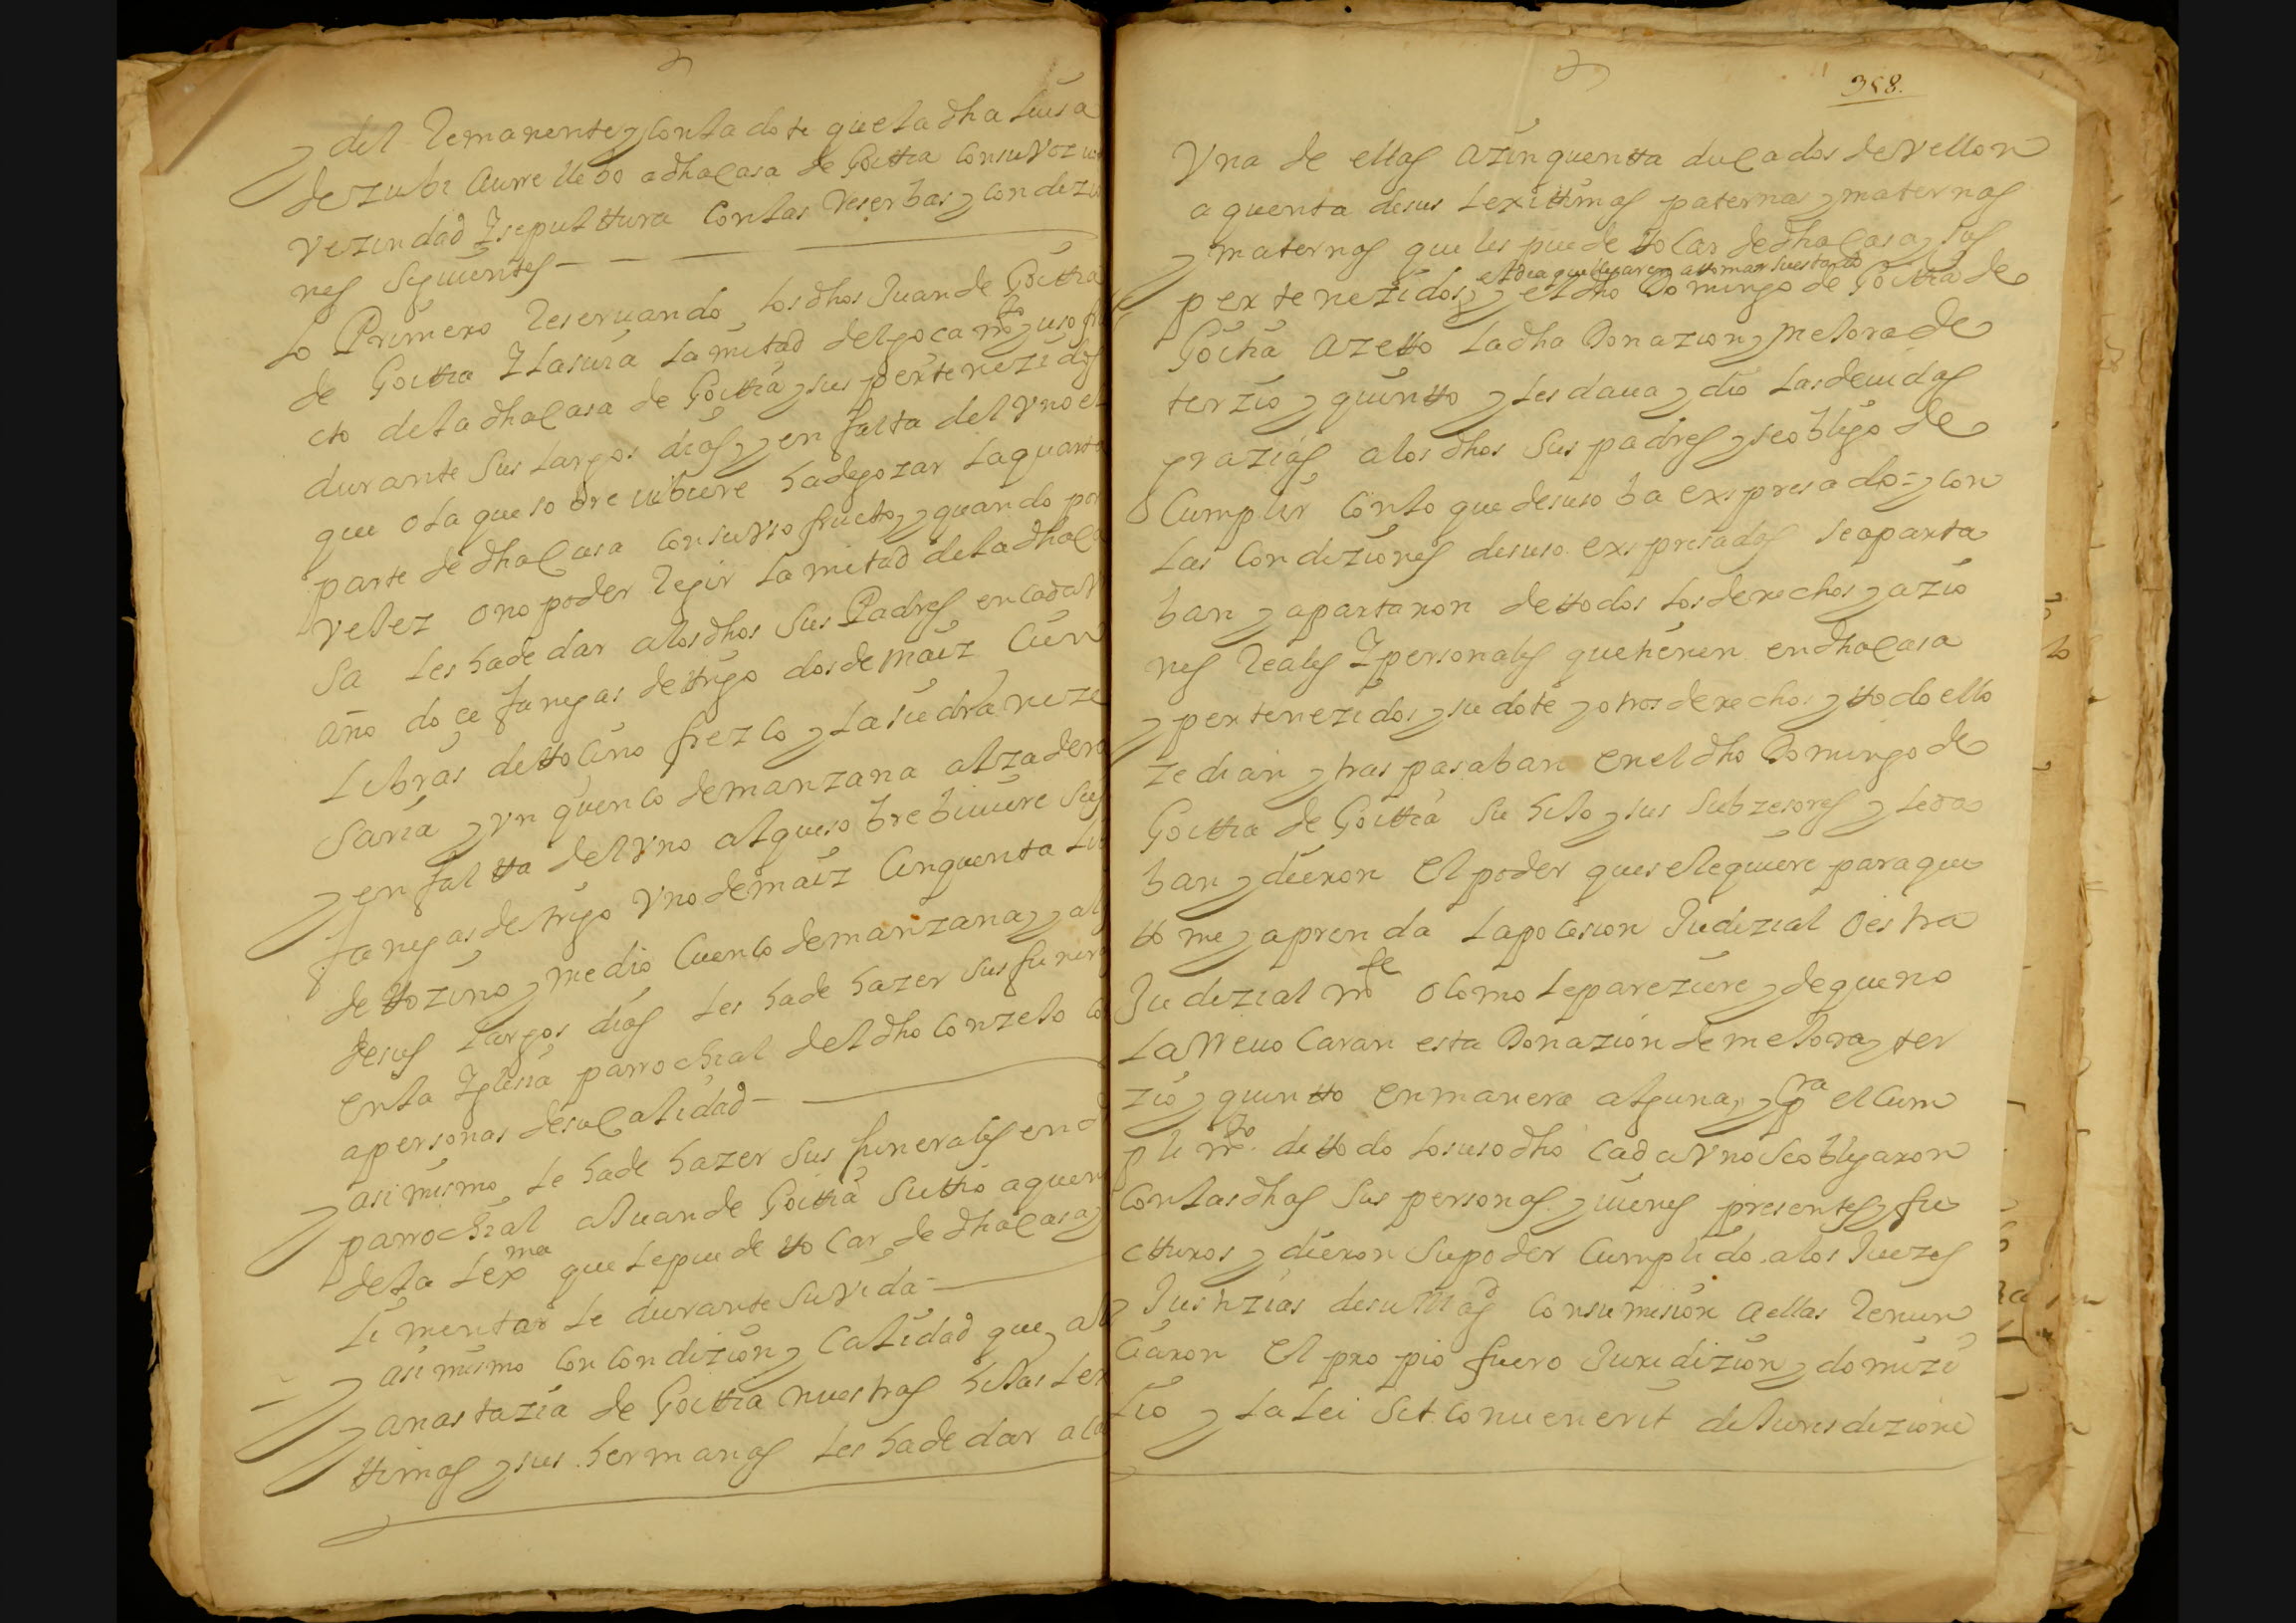 y del Remanente y con la dote que la dha luisa
de zubi aurre llebo a dha casa de Goittia con su voz
vezindad Y sepulttura con las Reserbas y condizio
nes siguientes —
Lo Primero Reseruando los dhos Juan de Goittia
de Goittia Y la suia la mitad del goçamto y uso fru
cto de la dha casa de Goittia y sus pertenezidos
durante sus largos dias y en falta del vno el
que o la que sobre uibiere ha de gozar la quarta
parte de dha casa con su vso fructo y quando por
velez o no poder Regir la mitad de la dha ca
sa les ha de dar a los dhos sus Padres en cada v
año doce fanegas de ttrigo dos de maiz Cien
libras de ttocino frezco y la siedra neze
saria y vn quenco de manzana alzadero
y en faltta del vno al que sobrebiuiere seis
fanegas de trigo vno de maiz Cinquenta lib
de ttozino y medio Cuenco de manzana y al
de sus largos dias les ha de hazer sus funera
en la Yglesia parrochial del dho conzelo co
a personas de su calidad —
y asi mismo le ha de hazer sus funerales en d
parrochial a Juan de Goittia su ttio a quen
de la lexma que le puede ttocar de dha casa y
limentar le durante su vida —
y asi mismo con condizion y calidad que a
y anastazia de Goittia nuestras hilas ler
ttimas y sus hermanas les ha de dar a ca
358.
Vna de ellas a zinquentta ducados de vellon
a quenta de sus lexittimas paternas y maternas
y maternas que les puede ttocar de dha casa y sus
el dia que llegaren a ttomar su estado
pertenezidos y el dho Domingo de Goittia de
Goitia azetto la dha Donazion y melora de
terzio y quintto y les daua y dio las deuidas
grazias a los dhos sus padres y se obligo de
Cumplir con lo que de suso ba exspresado = y con
las condiziones de suso exspresadas se aparta
ban y apartaron de ttodos los derechos y azio
nes Reales Y personales que tienen en dha casa
y pertenezidos y su dote y otros derechos y ttodo ello
zedian y traspasaban en el dho Domingo de
Goittia de Goittia su hilo y sus subzesores y le da
ban y dieron El poder que se Requiere para que
ttome y aprenda la posesion Judizial o estra
Judizialmte o como le pareziere y de que no
la Reuocaran esta Donazion de melora y ter
zio y quintto en manera alguna, y pa el Cum
plimto de ttodo lo susodho cada vno se obligaron
con las dhas sus personas y uienes presentes y fu
cturos y dieron su poder Cumplido a los Juezes
y Justizias de su Magd con sumision a ellas Renun
ciaron El propio fuero Juridizion y domizi
lio y la lei sit conuenerit de Jurisdizione